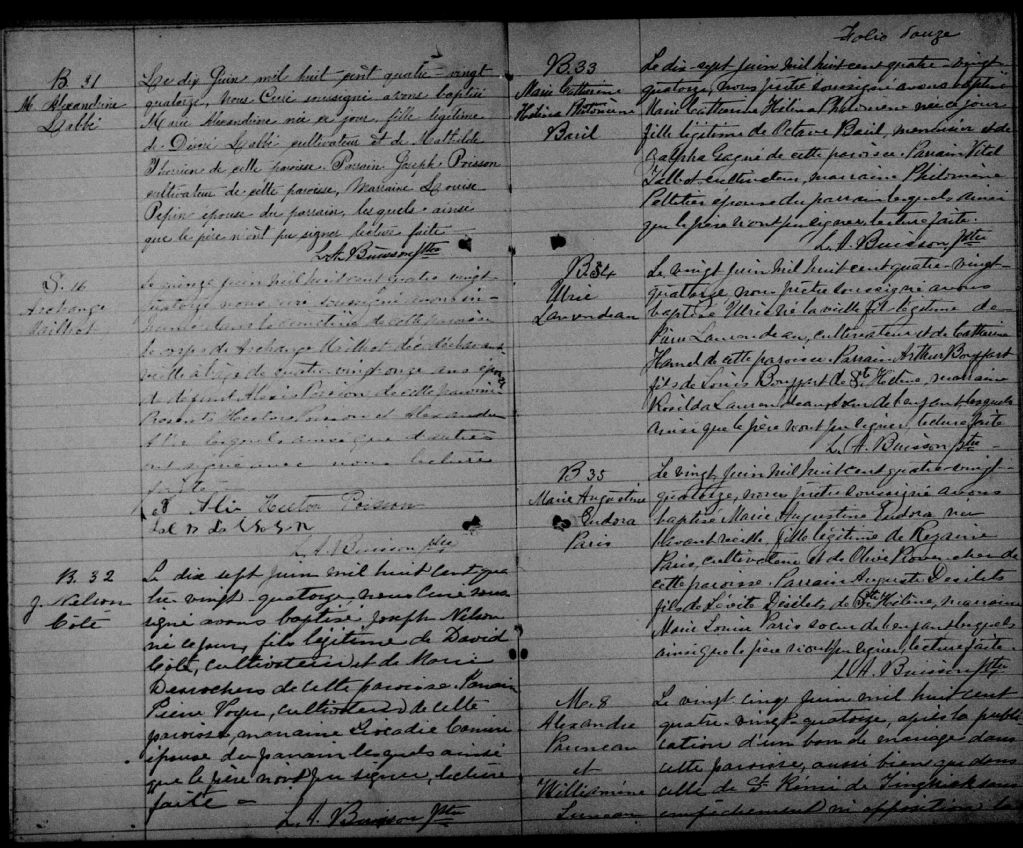 B. 31
M. Alexandrine
Labbé
Le dix Juin mil huit-cent quatre-vingt
quatorze, nous Curé soussigné avons baptisé
Marie Alexandrine née ce jour, fille légitime
de Labbé cultivateur et de Mathilde
Therrien de cette paroisse. Parrain Joseph Poisson
cultivateur de cette paroisse, Marraine Louise
Pepin épouse du parrain, lesquels ainsi
que le père n'ont pu signer lecture faite
L. A. Buisson Ptre
S. 16
Archange
Mailhot
Le quinze juin mil huit cent quatre vingt
quatorze nous curé soussigné avons in-
humé dans le cimetière de cette paroisse
le corps de Archange Mailhot décédée avant
veille à l'âge de quatre vingt onze ans épouse
de défunt Alexis Poisson de cette paroisse
Présents Hector Poisson et Alexandre
lesquels ainsi que d'autres
ont signé avec nous lecture
faite
Hector Poisson
L. A. Buisson Ptre
B. 32
J. Nelson
Côté
Le dix sept juin mil huit cent qua
tre vingt-quatorze nous curé sous
signé avons baptisé Joseph Nelson
né ce jour, fils légitime de David
Côté, cultivateur et de Marie
Desrochers de cette paroisse. Parrain
Pierre cultivateur de cette
paroisse, marraine Léocadie
épouse du parrain lesquels ainsi
que le père n'ont pu signer, lecture
faite -
L. A. Buisson Ptre
Folio douze
B. 33
Marie Catherine
Héléna Philomène
Baril
Le dix-sept juin mil huit cent quatre-vingt
quatorze, nous prêtre soussigné avons baptisé
Marie Catherine Héléna Philomène née ce jour
fille légitime de Octave Baril, menuisier et de
Gagné de cette paroisse. Parrain Vital
Talbot cultivateur, marraine Philomène
Pelletier épouse du parrain lesquels ainsi
que le père n'ont pu signer, lecture faite.
L. A. Buisson Ptre
B 34
Uric
Laurendeau
Le vingt juin mil huit cent quatre-vingt-
quatorze nous prêtre soussigné avons
baptisé Uric né la veille fils légitime de
Pierre Laurendeau, cultivateur et de Catherine
Hamel de cette paroisse. Parrain Arthur Bouffart
fils de Louis Bouffart de Ste Hélène, marraine
Rosilda Laurendeau soeur de l'enfant lesquels
ainsi que le père n'ont pu signer, lecture faite
L. A. Buisson Ptre
B 35
Marie Augustine
Eudora
Paris
Le vingt juin mil huit cent quatre-vingt-
quatorze, nous prêtre soussigné avons
baptisé Marie Augustine Eudora née
l'avant veille, fille légitime de
Paris, cultivateur et de Olive Provencher de
cette paroisse. Parrain Auguste Désilets
fils de Lévite Désilets, de Ste Hélène, marraine
Marie Louise Paris soeur de l'enfant lesquels
ainsi que le père n'ont pu signer, lecture faite.
L. A. Buisson Ptre
M. 8
Alexandre
Pruneau
et
Williamine
Luneau
Le vingt cinq juin mil huit cent
quatre-vingt quatorze, après la publi
cation d'un ban de mariage dans
cette paroisse, aussi bien que dans
celle de St Rémi de Tingwick sans
empêchement ni opposition